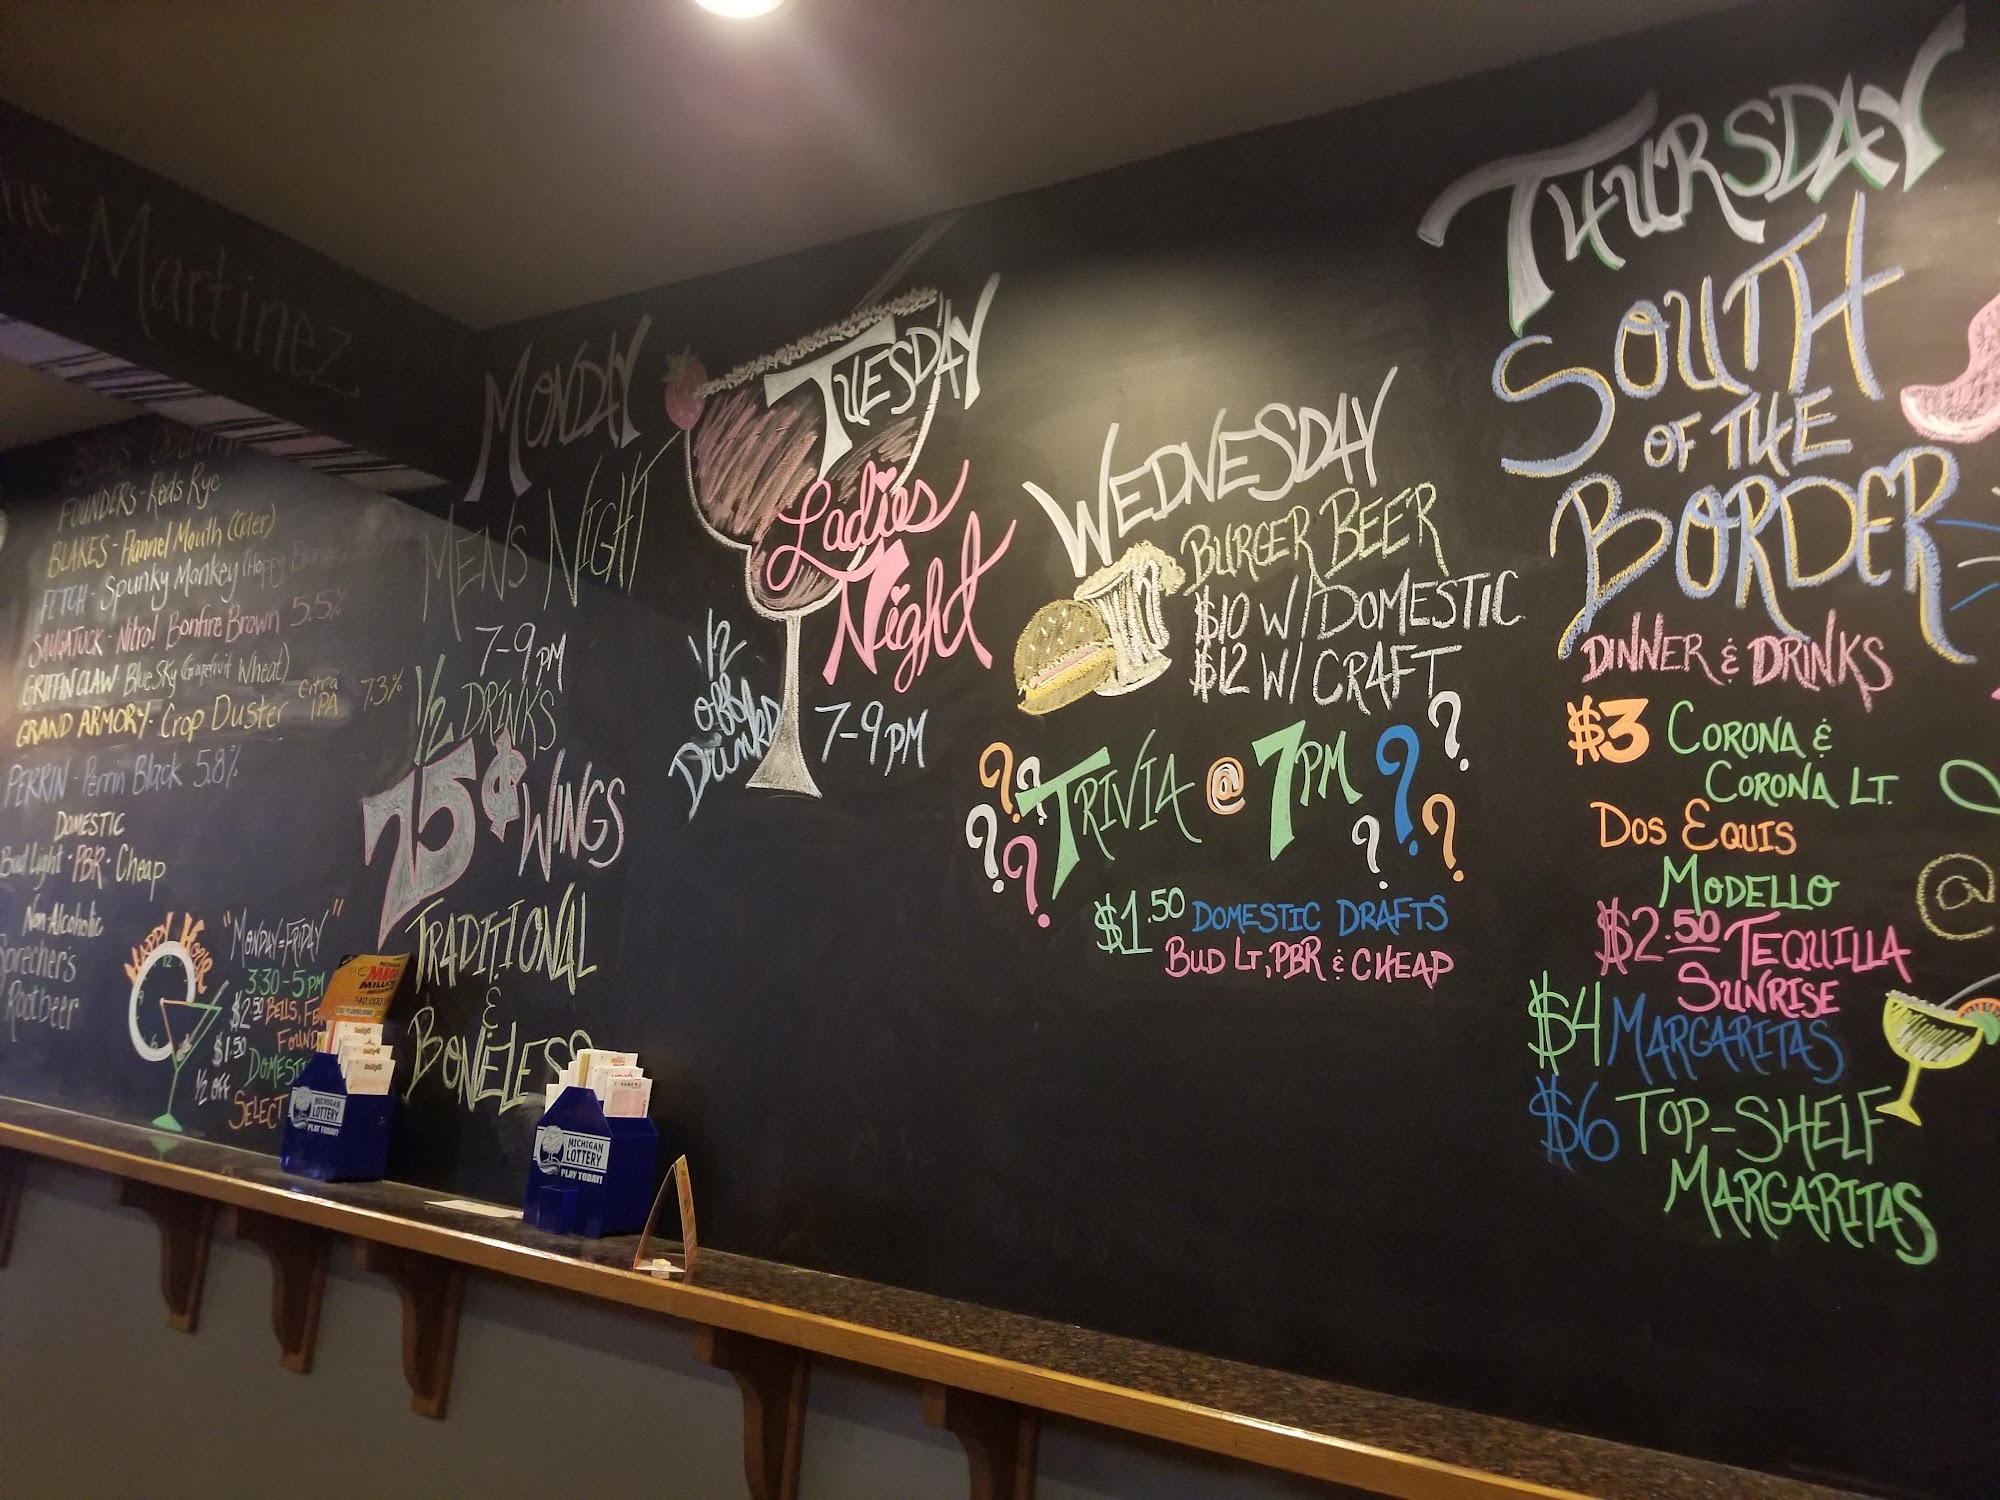 Martinez
FOUNDERS - Reds Rye
BLAKES - Flannel Mouth (Cider)
FETCH - Spunky Monkey (Hoppy
SAUGATUCK - Nitro! Bonfire Brown 5.5%
GRIFFIN CLAW - Blue Sky (Grapefruit Wheat)
GRAND ARMORY - Crop Duster Citra IPA 7.3%
PERRIN - Perrin Black 5.8%
DOMESTIC
Bud Light - PBR - Cheap
Non-Alcoholic
Sprecher's
Rootbeer
HAPPY HOUR
12
"MONDAY=FRIDAY"
3:30-5PM
$2.50 BELLS,
FOUND
$1.50 DOMEST
1/2 OFF
SELECT
MONDAY
MENS NIGHT
7-9PM
1/2 DRINKS
75¢ WINGS
TRADITIONAL
&
BONELESS
MICHIGAN
LOTTERY
PLAY TODAY!
MICHIGAN
LOTTERY
PLAY TODAY!
TUESDAY
Ladies
Night
1/2
OFF
Drinks
7-9PM
WEDNESDAY
BURGER BEER
$10 W/DOMESTIC
$12 W/CRAFT
? ? ? ? TRIVIA @ 7PM ? ? ? ?
$1.50 DOMESTIC DRAFTS
BUD LT, PBR & CHEAP
THURSDAY
SOUTH
OF THE
BORDER
DINNER & DRINKS
$3 CORONA &
CORONA LT.
DOS EQUIS
MODELLO
$2.50 TEQUILLA
SUNRISE
$4 MARGARITAS
$6 TOP-SHELF
MARGARITAS
@